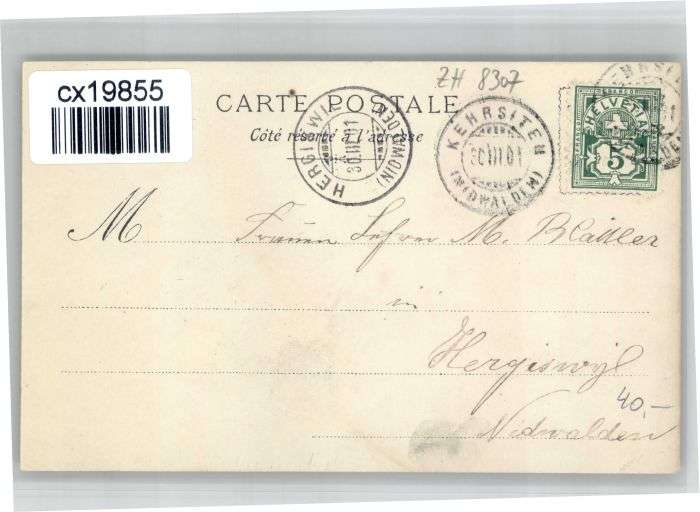 cx19855
ZH 8307
CARTE POSTALE
Côté réservé à l'adresse
HERGISWIL (NIDWALDEN)
30.III.01
KEHRSITEN
30 III 01
(NIDWALDEN)
FRANCO
HELVETIA
5
M Lehrer M. Blättler
in
Hergiswyl
40,-
Nidwalden